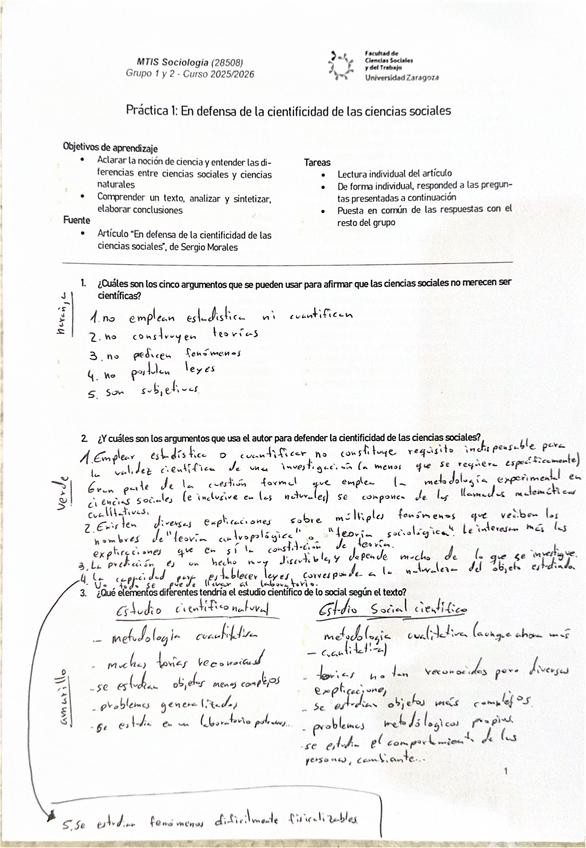 MTIS Sociología (28508)
Grupo 1 y 2 - Curso 2025/2026
Facultad de
Ciencias Sociales
y del Trabajo
Universidad Zaragoza
Práctica 1: En defensa de la cientificidad de las ciencias sociales
Objetivos de aprendizaje
• Aclarar la noción de ciencia y entender las di-
ferencias entre ciencias sociales y ciencias
naturales
• Comprender un texto, analizar y sintetizar,
elaborar conclusiones
Fuente
• Artículo "En defensa de la cientificidad de las
ciencias sociales", de Sergio Morales
Tareas
• Lectura individual del artículo
• De forma individual, responded a las pregun-
tas presentadas a continuación
• Puesta en común de las respuestas con el
resto del grupo
1. ¿Cuáles son los cinco argumentos que se pueden usar para afirmar que las ciencias sociales no merecen ser
científicas?
naranja
1. no emplean estadística ni cuantifican
2. no construyen teorías
3. no pedicen fenómenos
4. no postulan leyes
5. son subjetivas
2. ¿Y cuáles son los argumentos que usa el autor para defender la cientificidad de las ciencias sociales?
verde
1. Emplear estadística o cuantificar no constituye requisito indispensable para
la validez científica de una investigación (a menos que se requiera específicamente)
Gran parte de la cuestión formal que emplea la metodología experimental en
ciencias sociales (e inclusive en las naturales) se compone de las llamadas matemáticas
cualitativas.
2. Existen diversas explicaciones sobre múltiples fenómenos que reciben los
nombres de "teoría antropológica" o "teoría sociológica". Le interesan más las
explicaciones que en sí la constitución de teoría.
3. La predicción es un hecho muy discutible y depende mucho de lo que se investigue.
4. La capacidad para establecer leyes corresponde a la naturaleza del objeto estudiado
No todo se puede llevar al laboratorio.
3. ¿Qué elementos diferentes tendría el estudio científico de lo social según el texto?
amarillo
Estudio científico natural
- metodología cuantitativa
- muchas torías reconocidas
- se estudian objetos menos complejos
- problemas generalizados
- se estudia en un laboratorio
Estdio Social científico
metodología cualitativa (aunque ahora más
- cuantitativa)
- teorías no tan reconocidas pero diversas
explicaciones
- se estudian objetos más complejos.
- problemas metodológicos propios.
- se estudia el comportamiento de las
personas, cambiante...
1
5. Se estudian fenómenos difícilmente fisicalizables